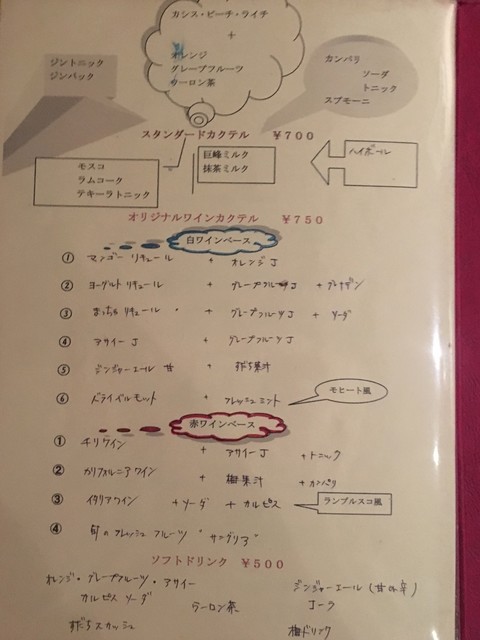 カシス・ピーチ・ライチ
+
オレンジ
グレープフルーツ
ウーロン茶
ジントニック
ジンバック
カンパリ
ソーダ
トニック
スプモーニ
スタンダードカクテル ¥700
モスコ
ラムコーク
テキーラトニック
巨峰ミルク
抹茶ミルク
ハイボール
オリジナルワインカクテル ¥750
白ワインベース
① マンゴー リキュール + オレンジJ
② ヨーグルト リキュール + グレープフルーツJ + グレナデン
③ まっちゃ リキュール + グレープフルーツJ + ソーダ
④ アサイーJ + グレープフルーツJ
⑤ ジンジャーエール 甘 + すだち果汁
⑥ ドライベルモット + フレッシュミント
モヒート風
赤ワインベース
① チリワイン + アサイーJ + トニック
② カリフォルニアワイン + 梅果汁 + カンパリ
③ イタリアワイン + ソーダ + カルピス
ランブルスコ風
④ 旬のフレッシュフルーツ "サングリア"
ソフトドリンク ¥500
オレンジ・グレープフルーツ・アサイー
ジンジャーエール (甘or辛)
カルピスソーダ
ウーロン茶
コーラ
すだちスカッシュ
梅ドリンク